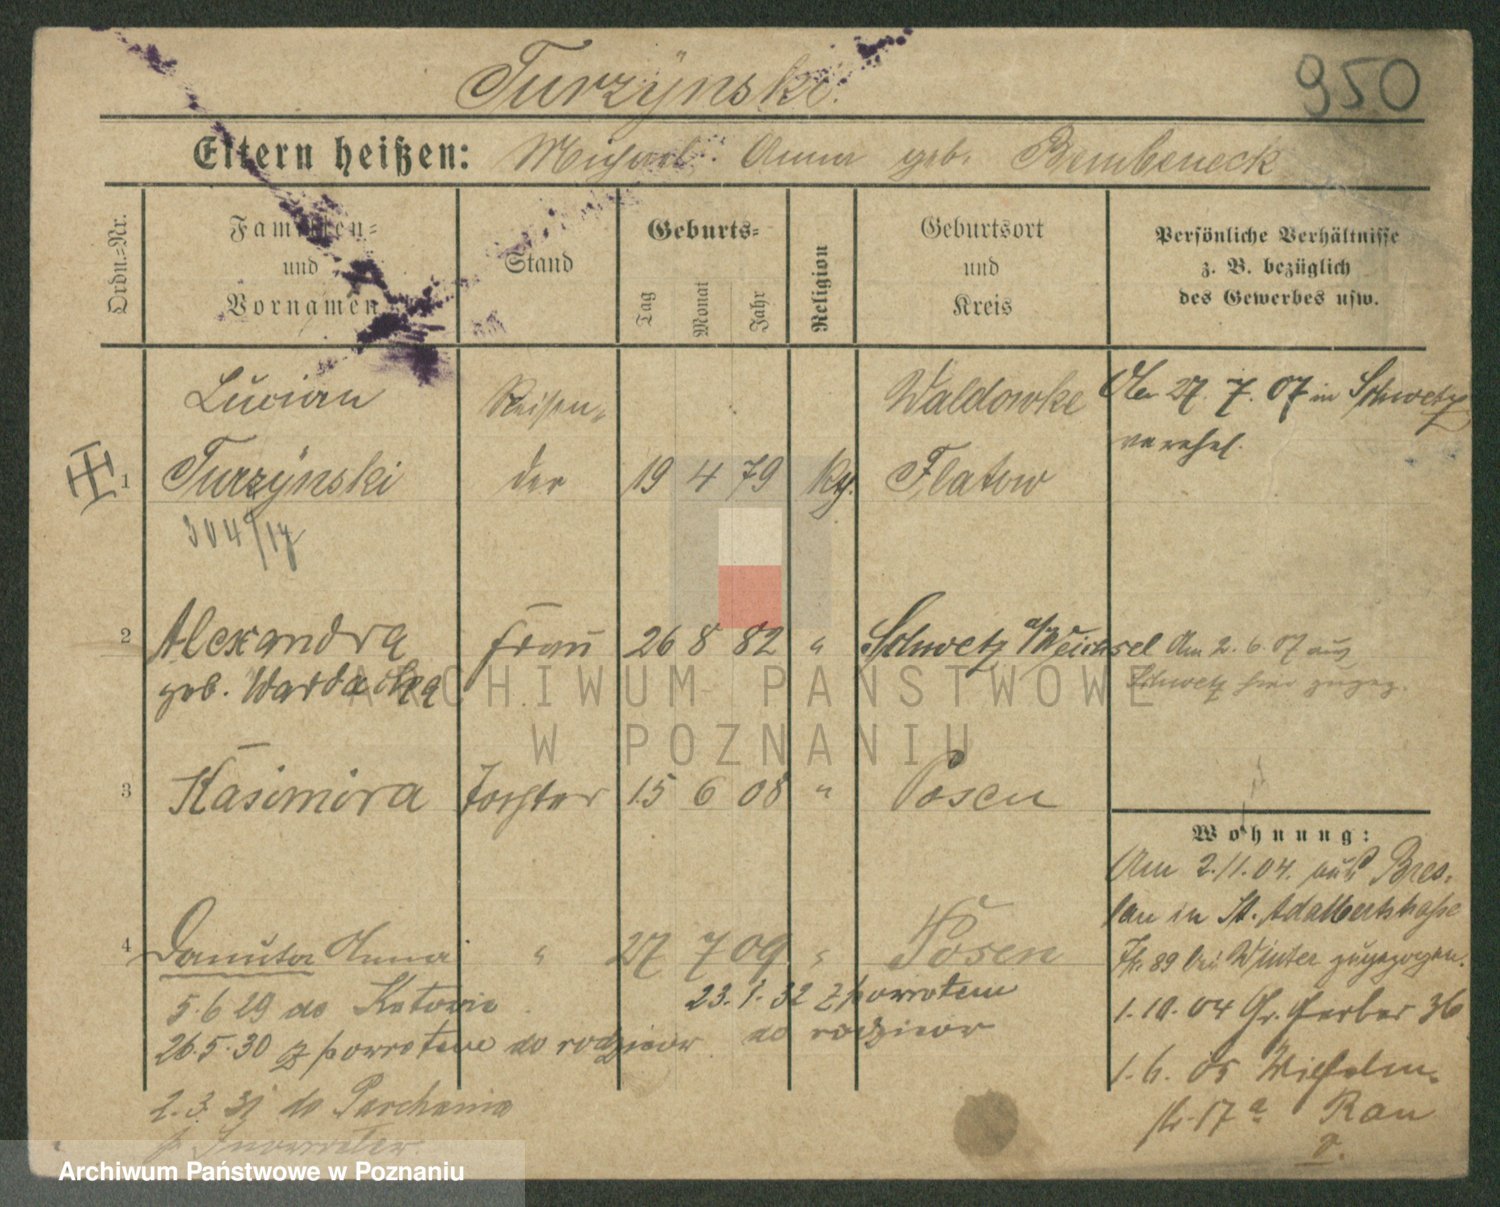 Turzÿnski.
950
Eltern heißen: Michael. Anna geb. Bembeneck
Ordn.=Nr.
Familien=
und
Vornamen
Stand
Geburts=
Tag
Monat
Jahr
Religion
Geburtsort
und
Kreis
Persönliche Verhältnisse
z. B. bezüglich
des Gewerbes usw.
Lucian Reisen= Waldowke Am 27. 7. 07 in Schwetz
verehel.
1 Turzÿnski der 19 4 79 Flatow
304/
2 Alexandra Frau 26 8 82 " Schwetz a/Weichsel Am 2. 6. 07 aus
geb. Wardacka Schwetz hier zugez.
3 Kasimira Tochter 15 6 08 " Posen
Wohnung:
Am 2.11.04. aus Bres=
lau in St. Adalbertstraße
4 Danuta Anna " 27 7 09 " Posen
39 bei Winter zugezogen.
5.6 29 do Katowic
23.1.32 z powrotem
1.10.04 Gr. Gerber 36
26.5.30 z powrotem do rodziców
do rodziców
1.6.05 Wilhelm=
2.3.31 do Parchania
str. 17a Rau
p. Inowrocław.
ARCHIWUM PAŃSTWOWE
W POZNANIU
Archiwum Państwowe w Poznaniu